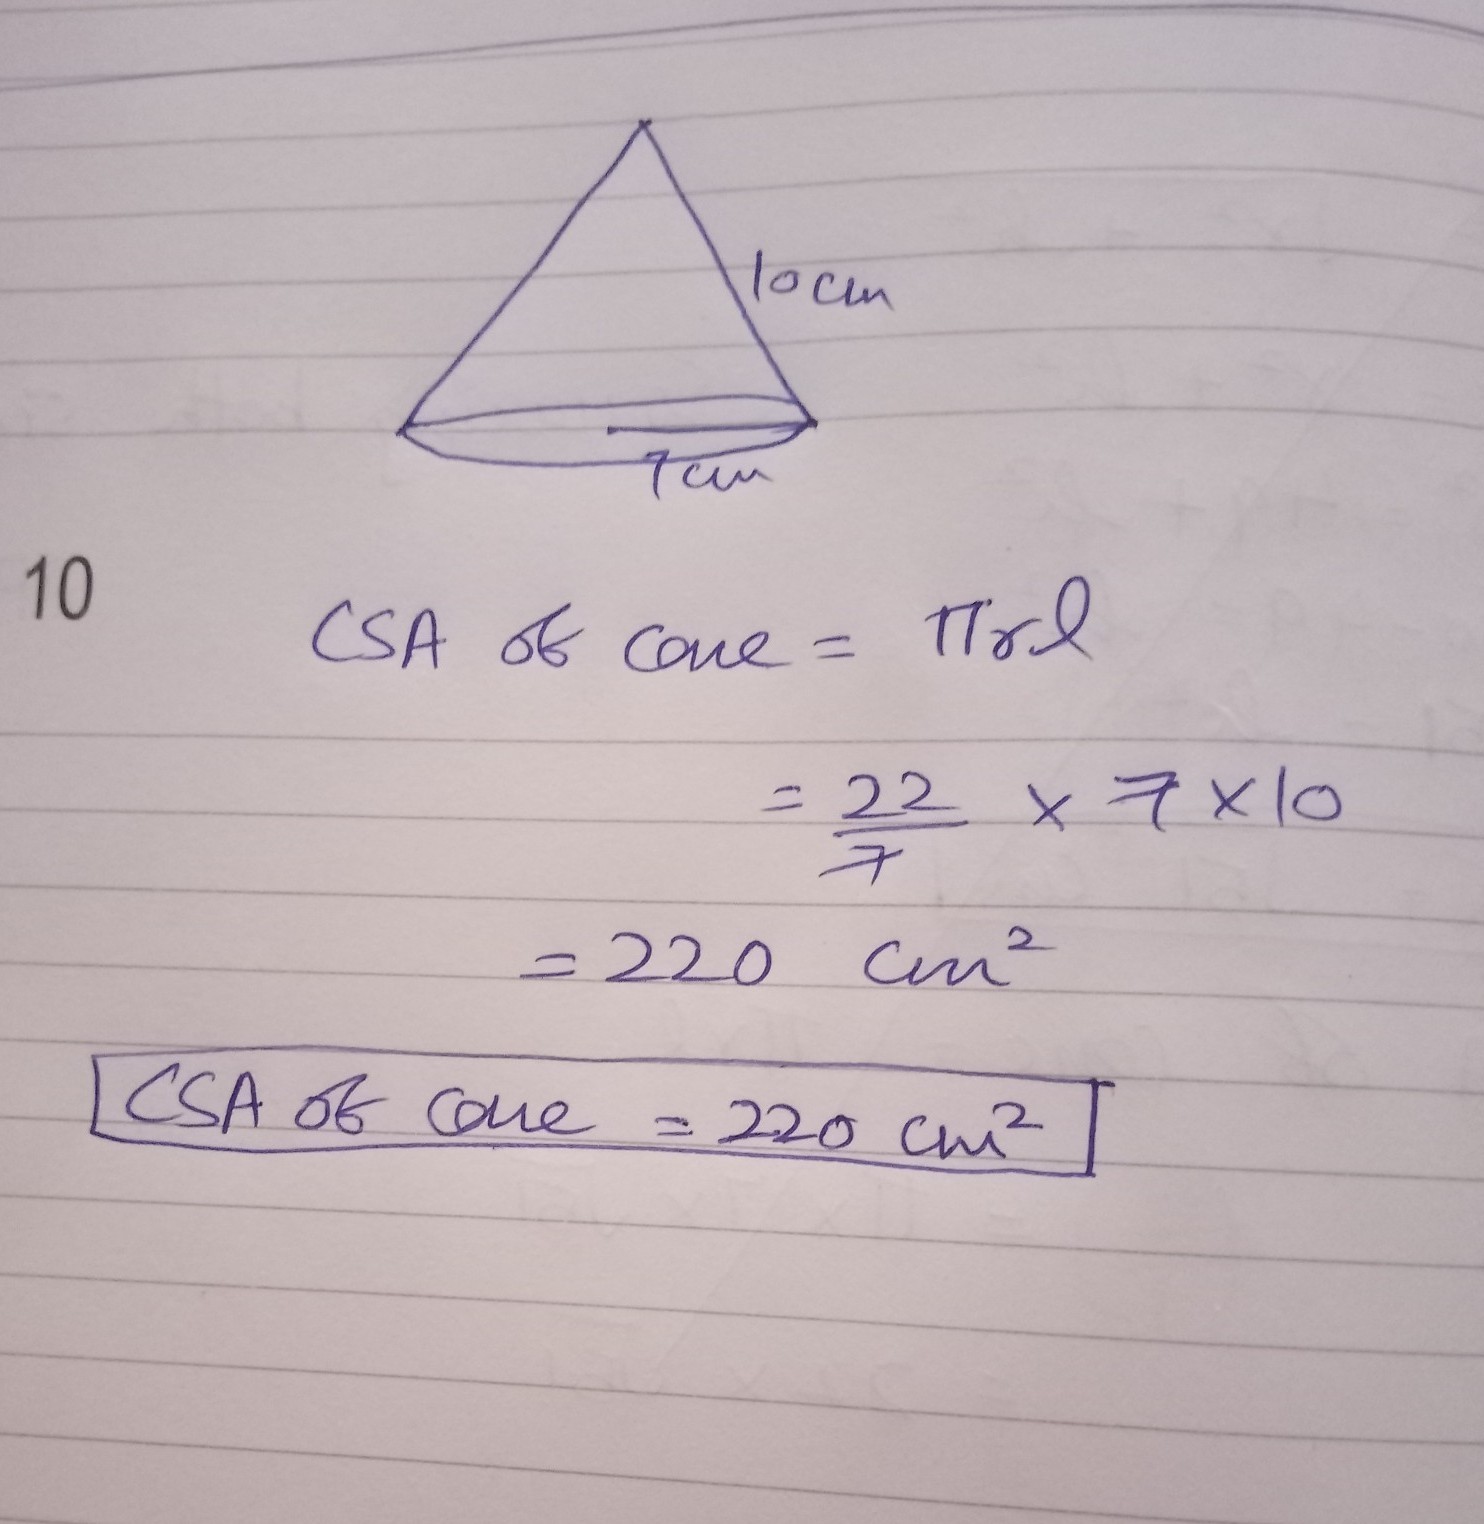 10cm
7cm
10
CSA of cone = πrl
= 22/7 × 7 × 10
= 220 cm²
CSA of cone = 220 cm²